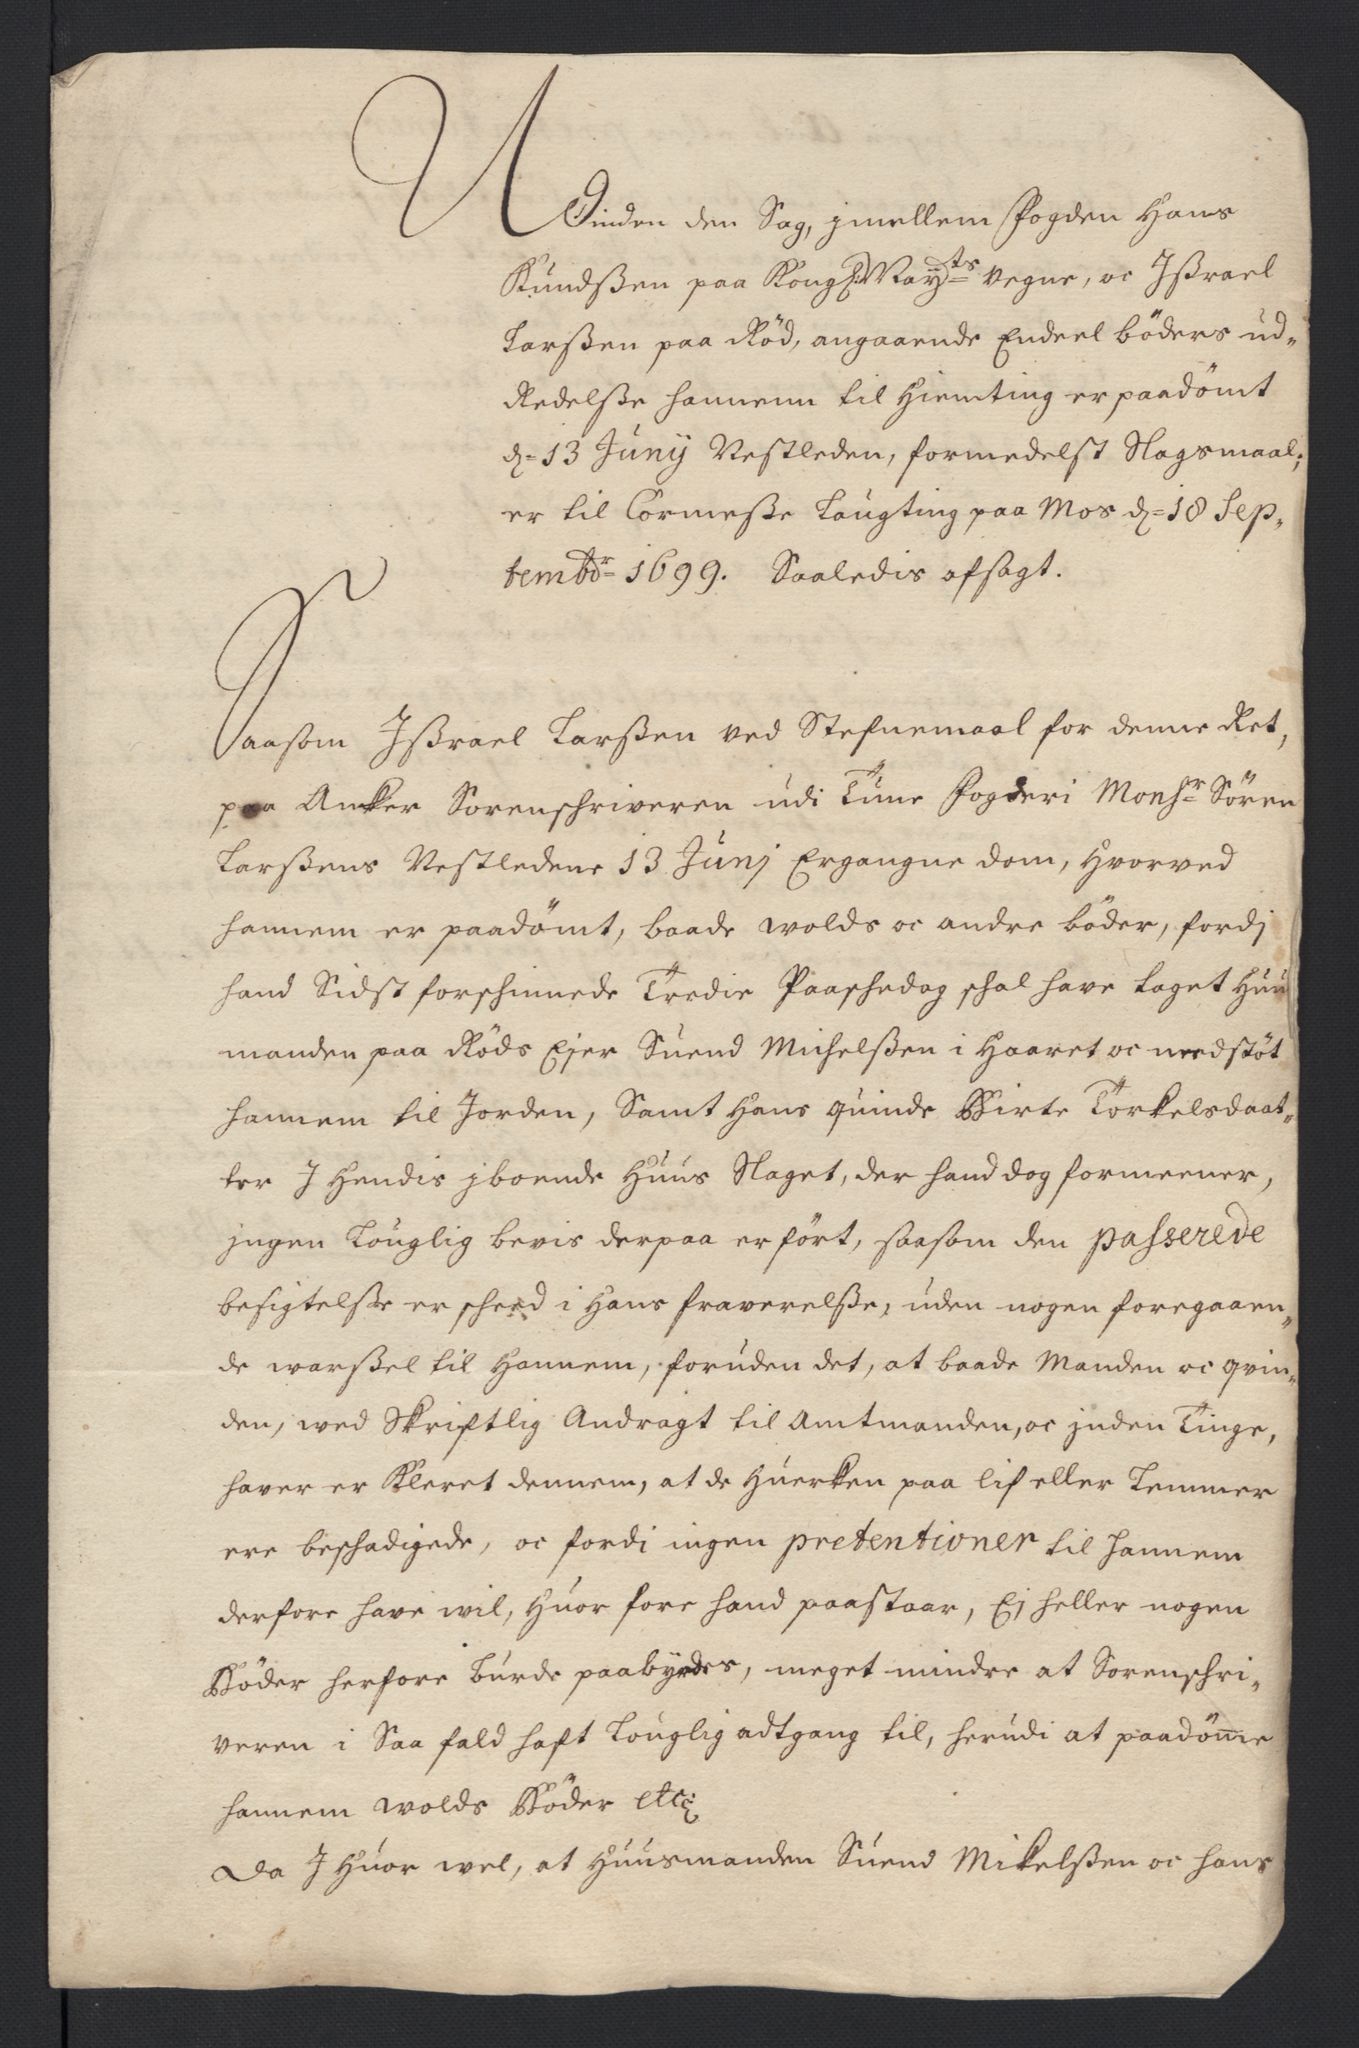 Udinden den Sag, jmellem Fogden Hans
Knudsßen paa Kongl: May:ts Vegne, oc Jßrael
Larßen paa Röd, angaaende Endeel böders ud-
Redelße hannem til Hiemting er paadömt
d= 13 Junij Nestleden, formedelst Slagsmaal;
er til Cormeße Laugting paa Mos d= 18 Sep-
tembr= 1699. Saaledis afsagt.
Saasom Jßrael Larßen ved Stefnemaal for denne Ret,
paa Anker Sorenschriveren udi Tune Fogderi Monsr= Sören
Larßens Nestledene 13 Junj Ergangne dom, Hvorved
hannem er paadömt, baade wolds oc andre böder, fordj
hand Sidst forschinnede Tredie Paaschedag schal have taget Huu
manden paa Röds Ejer Suend Michelßen i Haaret oc nedstöt
hannem til Jorden, Samt Hans quinde Birte Torkelsdaat-
ter J Hendis jboende Huus Slaget, der hand dog formeener,
jngen Louglig bevis derpaa er fört, saasom den passerede
besigtelße er scheed i Hans fraverelße, uden nogen foregaaen-
de warßel til Hannem, foruden det, at baade Manden oc qvin-
den, wed Skriftlig Andragt til Amtmanden, oc jnden Tinge,
haver er Kleret dennem, at de Huerken paa lif eller Lemmer
ere beschadigede, oc fordi ingen pretentioner til hannem
derfore have wil, Huor fore hand paastaar, Ej heller nogen
Böder herfore burde paabyrdes, meget mindre at Sorenschri-
veren i Saa fald haft Louglig adtgang til, herudi at paadöme
hannem wolds Böder etc:
Da J Huor wel, at Huusmanden Suend Mikelßen oc hans